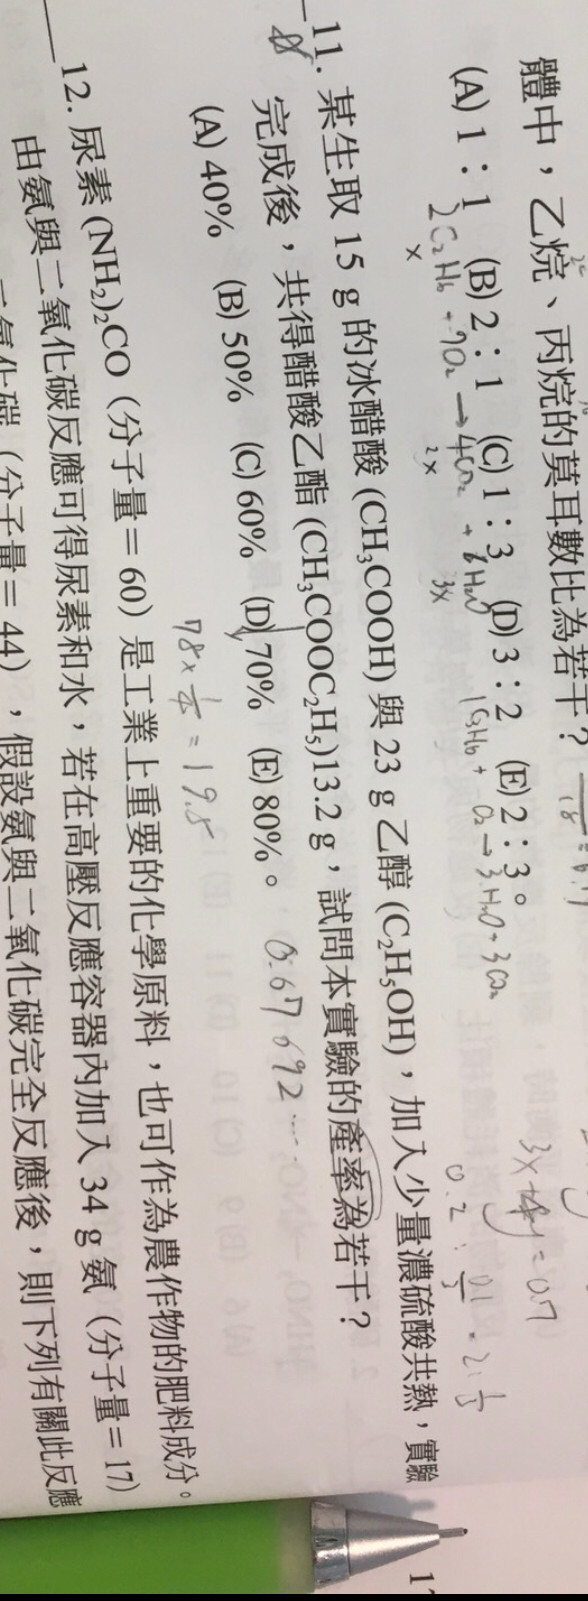 體中，乙烷、丙烷的莫耳數比為若干？
(A) 1：1 (B) 2：1 (C) 1：3 (D) 3：2 (E) 2：3。
2C₂H₆ + 7O₂ → 4CO₂ + 6H₂O
x 2x 3x
3x + 4y = 0.7
11. 某生取 15 g 的冰醋酸 (CH₃COOH) 與 23 g 乙醇 (C₂H₅OH)，加入少量濃硫酸共熱，實驗
完成後，共得醋酸乙酯 (CH₃COOC₂H₅)13.2 g，試問本實驗的產率為若干？
(A) 40% (B) 50% (C) 60% (D) 70% (E) 80%。
0.67692...
78 × 1/4 = 19.5
12. 尿素 (NH₂)₂CO（分子量＝60）是工業上重要的化學原料，也可作為農作物的肥料成分。
由氨與二氧化碳反應可得尿素和水，若在高壓反應容器內加入 34 g 氨（分子量＝17）
二氧化碳（分子量＝44），假設氨與二氧化碳完全反應後，則下列有關此反應